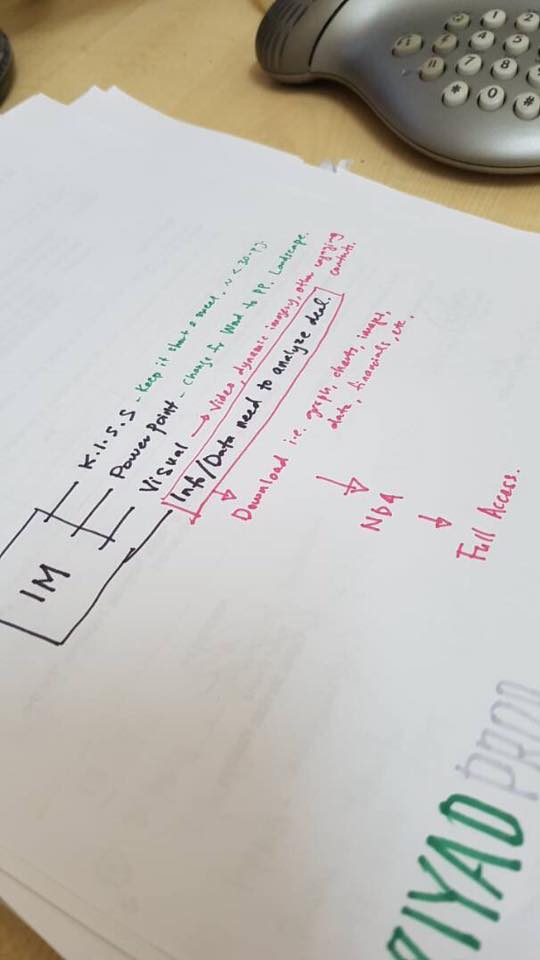 IM
K.I.S.S - Keep it short & sweet. ~ < 30 pg.
Power point - change fr Word to PP. Landscape.
Visual → Video, dynamic imagery, other engaging
contents.
Info/Data need to analyze deal.
Download i.e. graph, charts, images,
data, financials, etc.
NDA
Full Access.
RIYAD PROJ
1 2
4 5
7 8
* 0 #